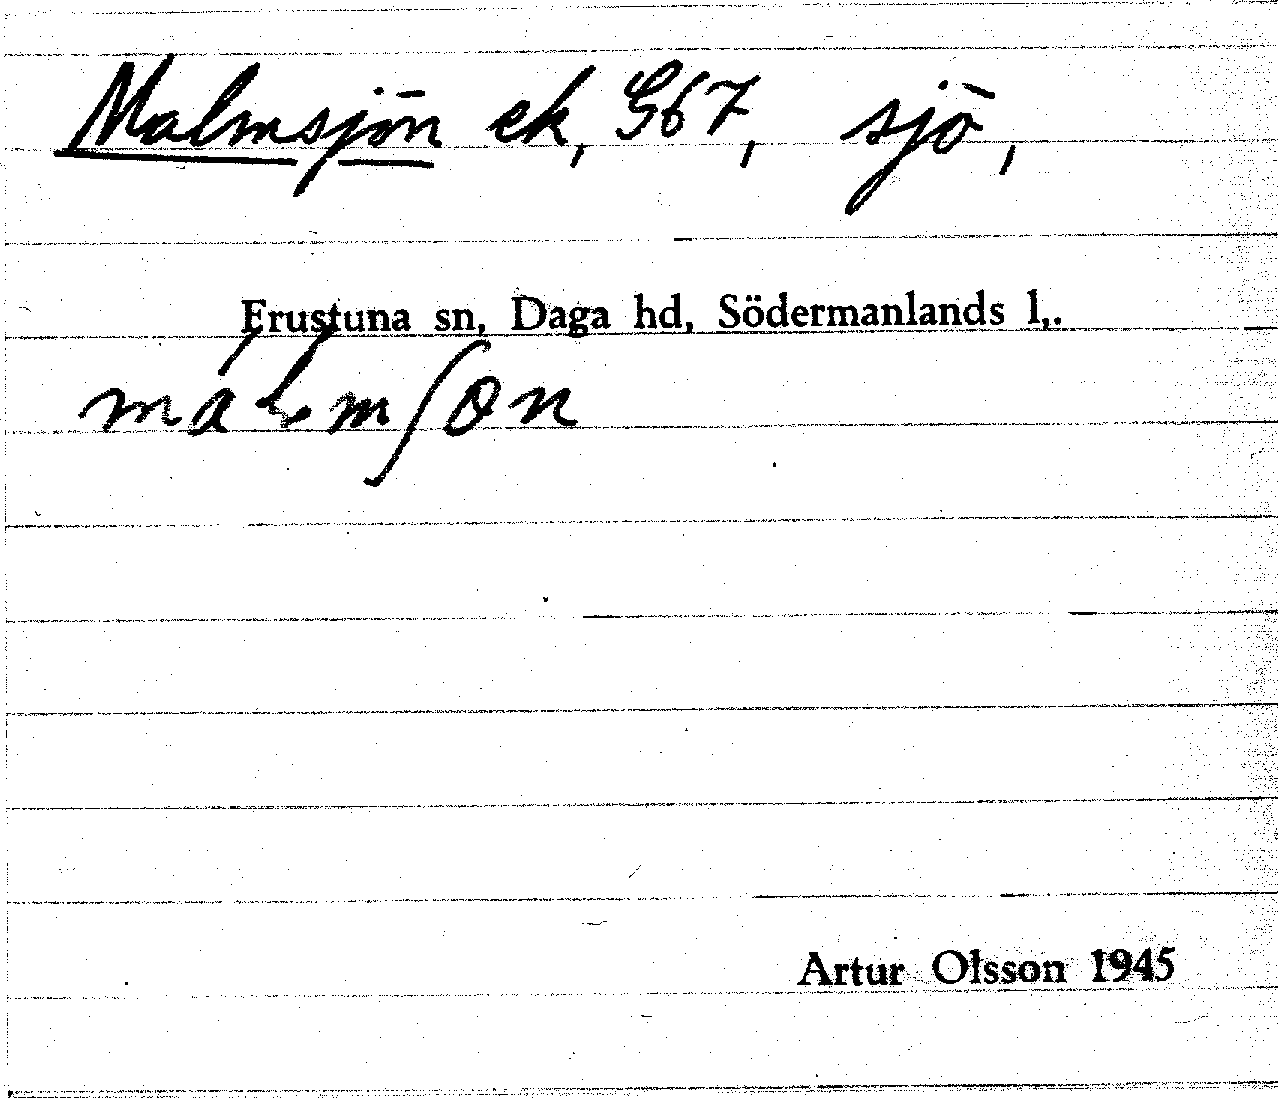 Malmsjön ek, G67, sjö,
Frustuna sn, Daga hd, Södermanlands l,.
Artur Olsson 1945